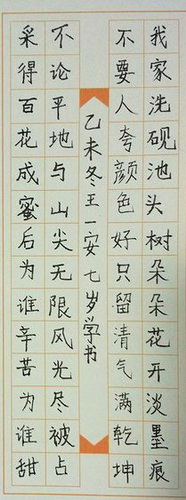 我家洗砚池头树朵朵花开淡墨痕
不要人夸颜色好只留清气满乾坤
乙未冬王一安七岁学书
不论平地与山尖无限风光尽被占
采得百花成蜜后为谁辛苦为谁甜